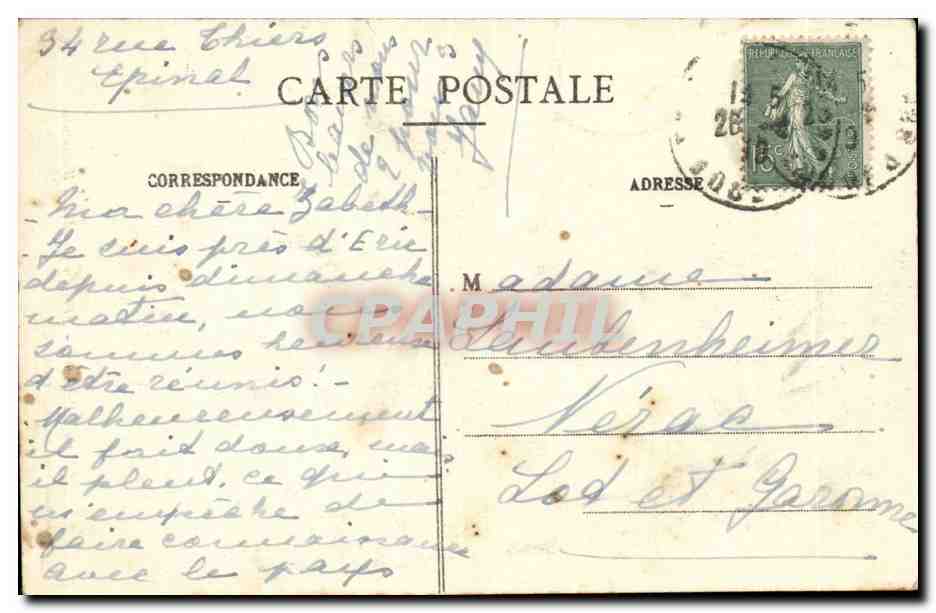 34 rue Thiers
Epinal
CARTE POSTALE
Bons
baisers
de nous
2 pour vous
Jacny
REPUBLIQUE FRANÇAISE
15 c
POSTES
CORRESPONDANCE
ADRESSE
- Ma chère Zabeth -
- Je suis près d'Eric
depuis dimanche
matin, nous
sommes heureux
d'être réunis! -
Malheureusement
il fait doux, mais
il pleut, ce qui
m'empêche de
faire connaissance
avec le pays
Madame
Landenheimer
Nérac
Lot et Garonne
CPAPHIL